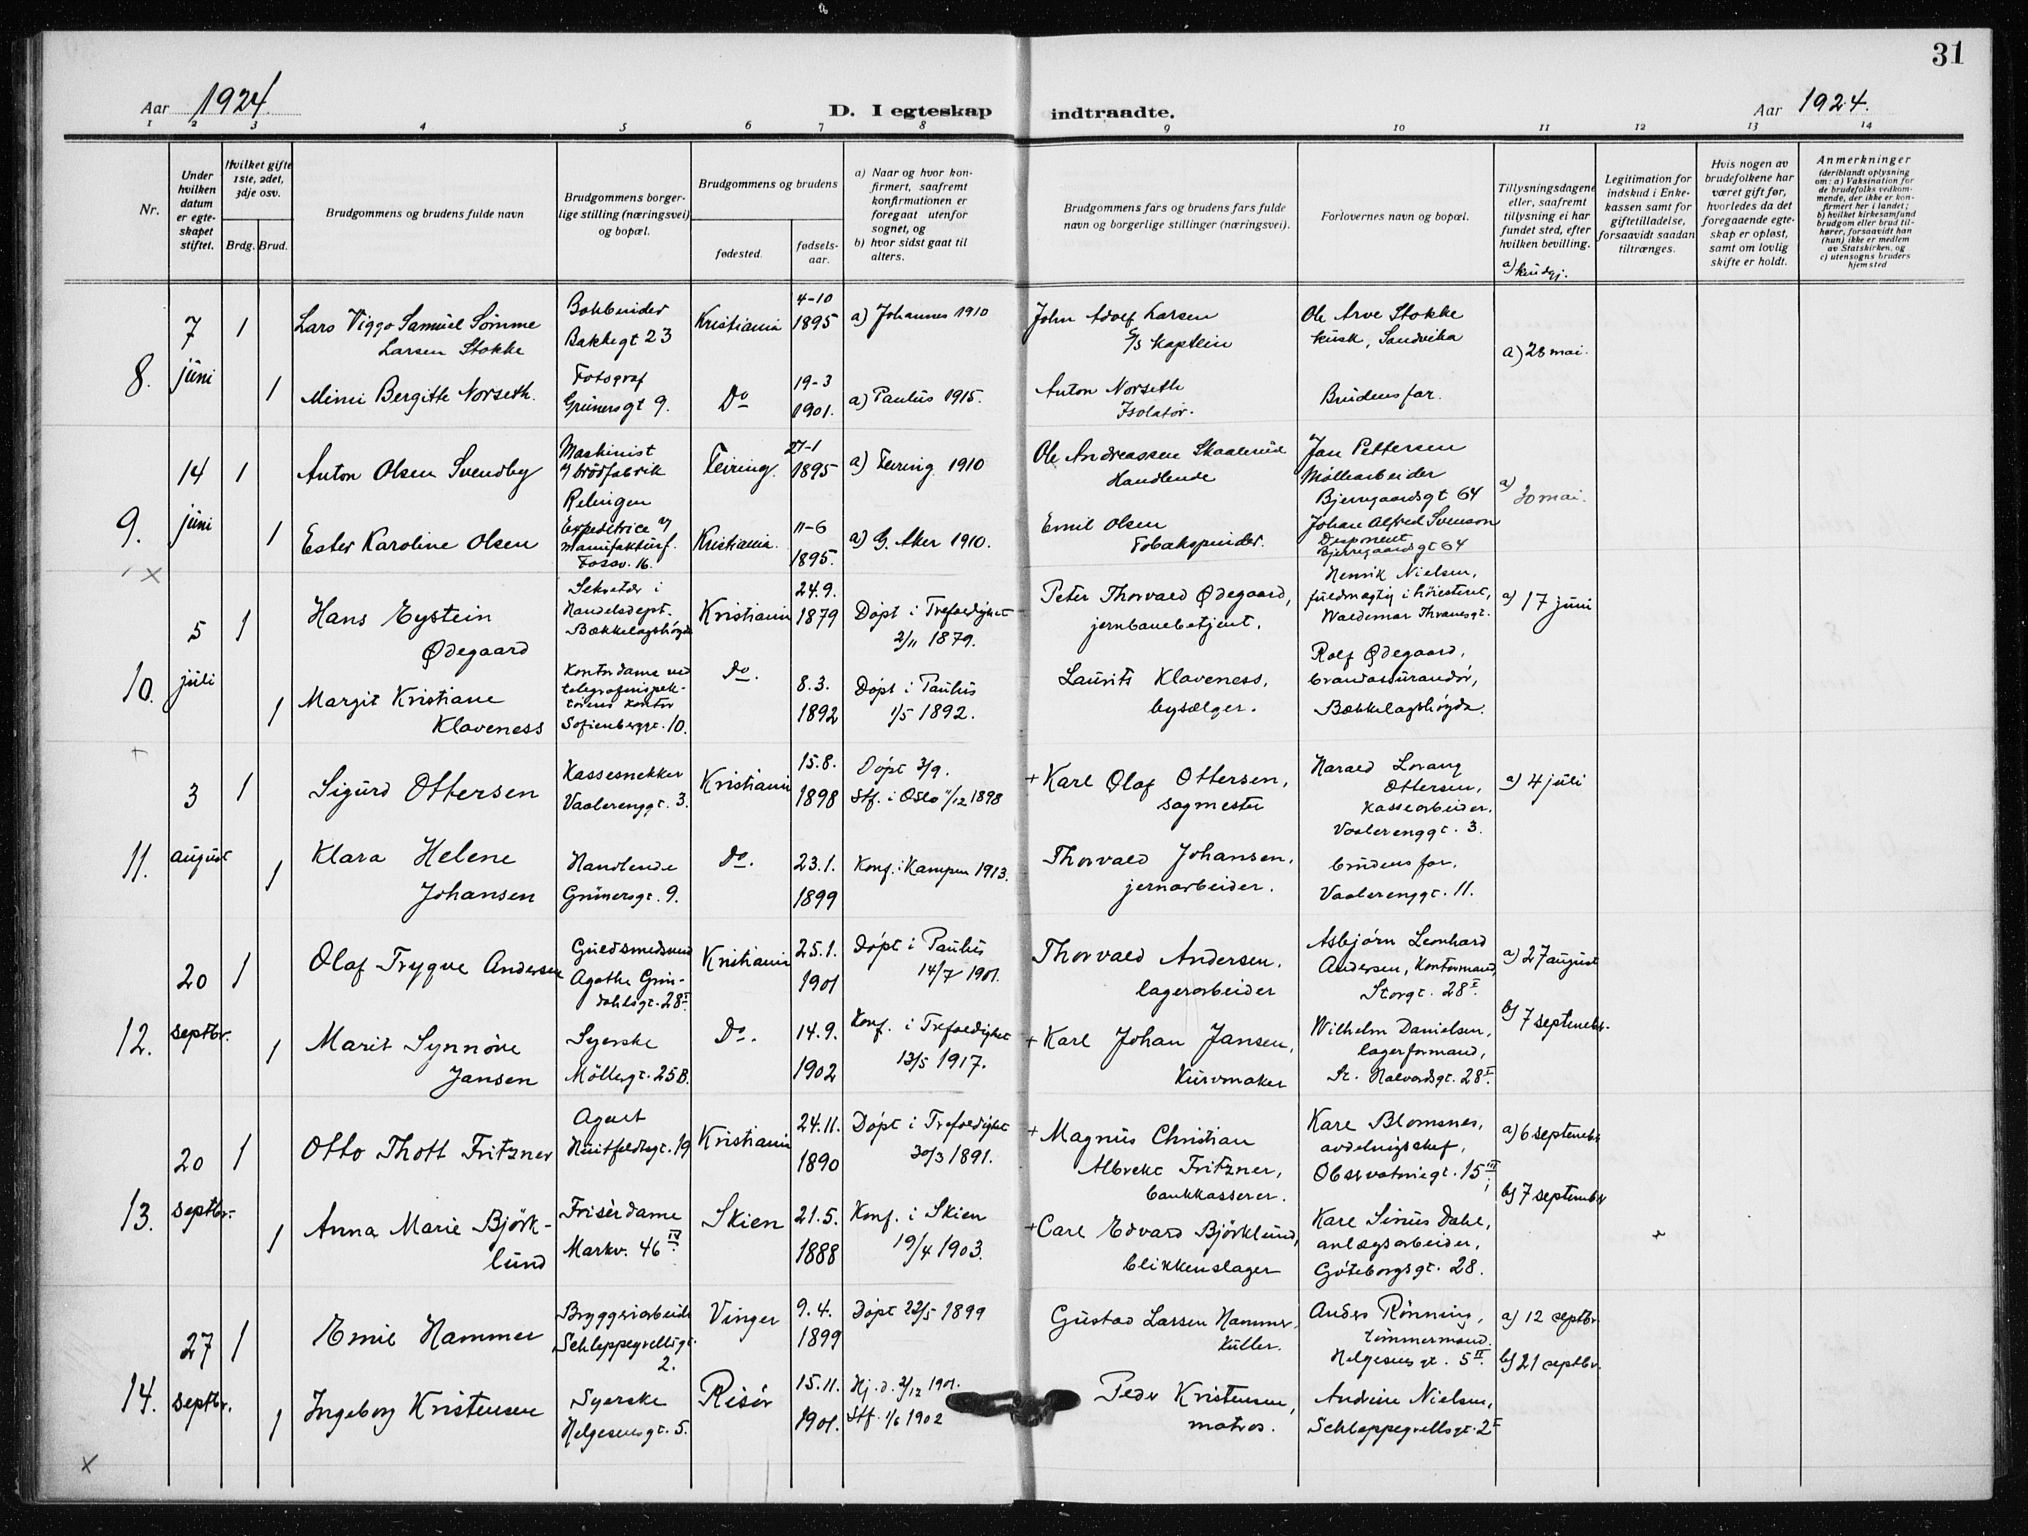 31
Aar 1924.
D. I egteskap indtraadte.
Aar 1924.
1 2 3 4 5 6 7 8 9 10 11 12 13 14
Nr.
Under hvilken datum er egteskapet stiftet.
Hvilket gifte 1ste, 2det, 3dje osv.
Brdg. Brud.
Brudgommens og brudens fulde navn
Brudgommens borgerlige stilling (næringsvei) og bopæl.
Brudgommens og brudens
fødested.
fødselsaar.
a) Naar og hvor konfirmert, saafremt konfirmationen er foregaat utenfor sognet, og
b) hvor sidst gaat til alters.
Brudgommens fars og brudens fars fulde navn og borgerlige stillinger (næringsvei).
Forlovernes navn og bopæl.
Tillysningsdagene eller, saafremt tillysning ei har fundet sted, efter hvilken bevilling.
Legitimation for indskud i Enkekassen samt for giftetilladelse, forsaavidt saadan tiltrænges.
Hvis nogen av brudefolkene har været gift før, hvorledes da det foregaaende egteskap er opløst, samt om lovlig skifte er holdt.
Anmerkninger (deriblandt oplysning om: a) Vaksination for de brudefolks vedkommende, der ikke er konfirmert her i landet; b) hvilket kirkesamfund brudgom eller brud tilhører, forsaavidt han (hun) ikke er medlem av Statskirken, og c) utensogns bruders hjemsted
8.
7 juni
1
Lars Viggo Samuel Sømme
Larsen Stokke
Bokbinder
Bakkegt 23
Kristiania
4-10
1895
a) Johannes 1910
John Adolf Larsen
kaptein
Ole Arve Stokke
kusk, Sandvika
a) 28 mai.
1
Mimi Bergitte Norseth.
Fotograf
Grünersgt 9.
Do
19-3
1901.
a) Paulus 1915.
Anton Norseth
Isolatør.
Brudens far.
9.
14 juni
1
Anton Olsen Svendby
Maskinist
v/ brødfabrik
Relingen
Feiring.
27-1
1895
a) Feiring 1910
Ole Andreassen
Handlende
Jan Pettersen
Møllearbeider
Bjerregaardsgt 64
a) 30 mai.
1
Ester Karoline Olsen
Expeditrice v/
manufakturf.
Fossv. 16.
Kristiania.
11-6
1895.
a) G. Aker 1910.
Emil Olsen
Tobakspinder.
Johan Alfred Svenson
Disponent
Bjerregaardsgt 64
10.
5 juli
1
Hans Eystein
Ødegaard
Sekretær i
Handelsdept.
Bækkelagshøgda
Kristiania
24.9.
1879
Døpt i Trefoldighet
2/11 1879.
Peter Thorvald Ødegaard,
jernbanebetjent.
Henrik Nielsen,
fuldmægtig i høiesteret,
Waldemar Thranesgt.
a) 17 juni
1
Margit Kristiane
Klaveness
Kontordame ved
telegrafinspek-
tørens kontor
Sofienberggt. 10.
Do.
8.3.
1892
Døpt i Paulus
1/5 1892.
Laurits Klaveness,
bysælger.
Rolf Ødegaard,
brandassurandør,
Bækkelagshøgda.
11.
3 august
1
Sigurd Ottersen
Kassesnekker
Vaalerenggt. 3.
Kristiania
15.8.
1898
Døpt 3/9.
Stf. i Oslo 11/12 1898
+ Karl Olaf Ottersen,
sagmester
Harald Lorang
Ottersen,
kassearbeider.
Vaalerenggt. 3.
a) 4 juli
1
Klara Helene
Johansen
Handlende
Grünersgt. 9.
Do.
23.1.
1899
Konf. i Kampen 1913.
Thorvald Johansen,
jernarbeider.
brudens far.
Vaalerenggt. 11.
12.
20 septbr.
1
Olaf Trygve Andersen
Guldsmedsvend
Agathe Grøn-
dahlsgt. 28 I
Kristiania
25.1.
1901
Døpt i Paulus
14/7 1901.
Thorvald Andersen,
lagerarbeider
Asbjørn Leonhard
Andersen, Kontormand,
Storgt. 28 I.
a) 27 august
b) 7 september.
1
Marit Synnøve
Jansen
Syerske
Møllergt. 25 B.
Do.
14.9.
1902
Konf. i Trefoldighet
13/5 1917.
+ Karl Johan Jansen,
kurvmaker
Wilhelm Danielsen,
lagerformand,
St. Halvardsgt. 28 I.
13.
20 septbr.
1
Otto Thott Fritzner
Agent
Huitfeldtsgt. 19
Kristiania
24.11.
1890
Døpt i Trefoldighet
30/3 1891.
+ Magnus Christian
Albrekt Fritzner,
bankkasserer.
Karl Blomsnes,
avdelingschef,
Observatoriegt. 15 III,
a) 6 september
b) 7 september
1
Anna Marie Björk-
lund
Frisérdame
Markv. 46 IV.
Skien
21.5.
1888
Konf. i Skien
19/4 1903.
+ Carl Edvard Björklund,
blikkenslager
Karl Sirius Dahl,
anlægsarbeider,
Göteborgsgt. 28.
14.
27 septbr.
1
Emil Hammer
Bryggeriarbeider
Schleppegrellsgt.
2.
Vinger
9.4.
1899
Døpt 22/5 1899
Gustav Larsen Hammer,
kuller.
Anders Rønning,
tømmermand.
Helgesens gt. 5 II.
a) 12 septbr
b) 21 septbr.
1
Ingeborg Kristensen
Syerske
Helgesensgt. 5.
Risör
15.11.
1901.
Hj.d. 2/12 1901.
Stf. 1/6 1902
Peder Kristensen,
matros.
Andrine Nielsen,
Schleppegrellsgt. 2 I